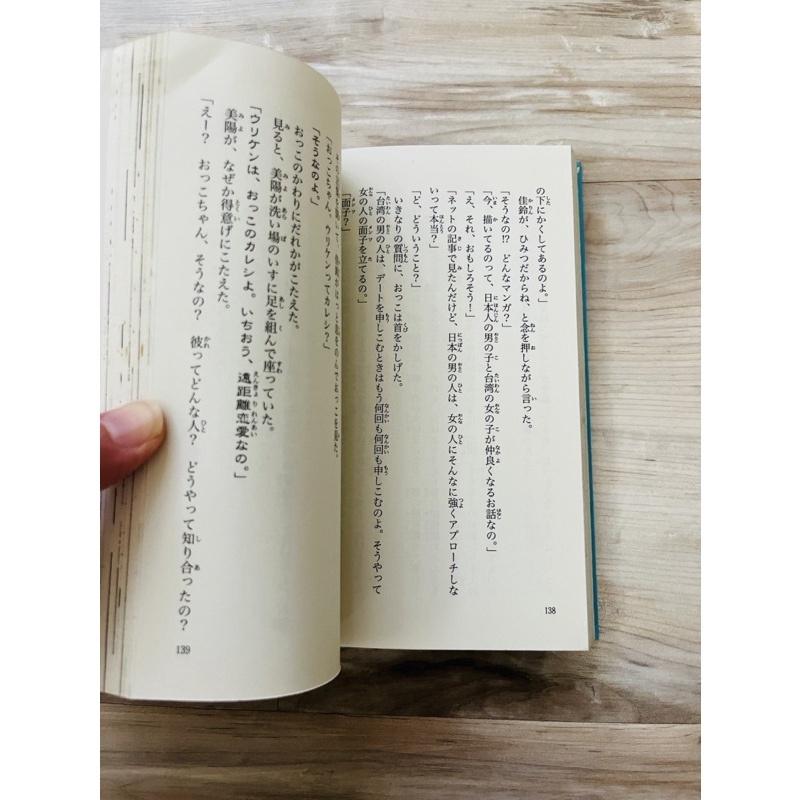 の下にかくしてあるのよ。」
佳鈴が、ひみつだからね、と念を押しながら言った。
「そうなの!? どんなマンガ?」
「今、描いてるのって、日本人の男の子と台湾の女の子が仲良くなるお話なの。」
「え、それ、おもしろそう!」
「ネットの記事で見たんだけど、日本の男の人は、女の人にそんなに強くアプローチしな
いって本当?」
「ど、どういうこと?」
いきなりの質問に、おっこは首をかしげた。
「台湾の男の人は、デートを申しこむときはもう何回も何回も申しこむのよ。そうやって
女の人の面子を立てるの。」
「面子?」
138
「おっこちゃん、ウリケンってカレシ?」
「そうなのよ。」
おっこのかわりにだれかがこたえた。
見ると、美陽が洗い場のいすに足を組んで座っていた。
「ウリケンは、おっこのカレシよ。いちおう、遠距離恋愛なの。」
美陽が、なぜか得意げにこたえた。
「えー? おっこちゃん、そうなの? 彼ってどんな人? どうやって知り合ったの?
139